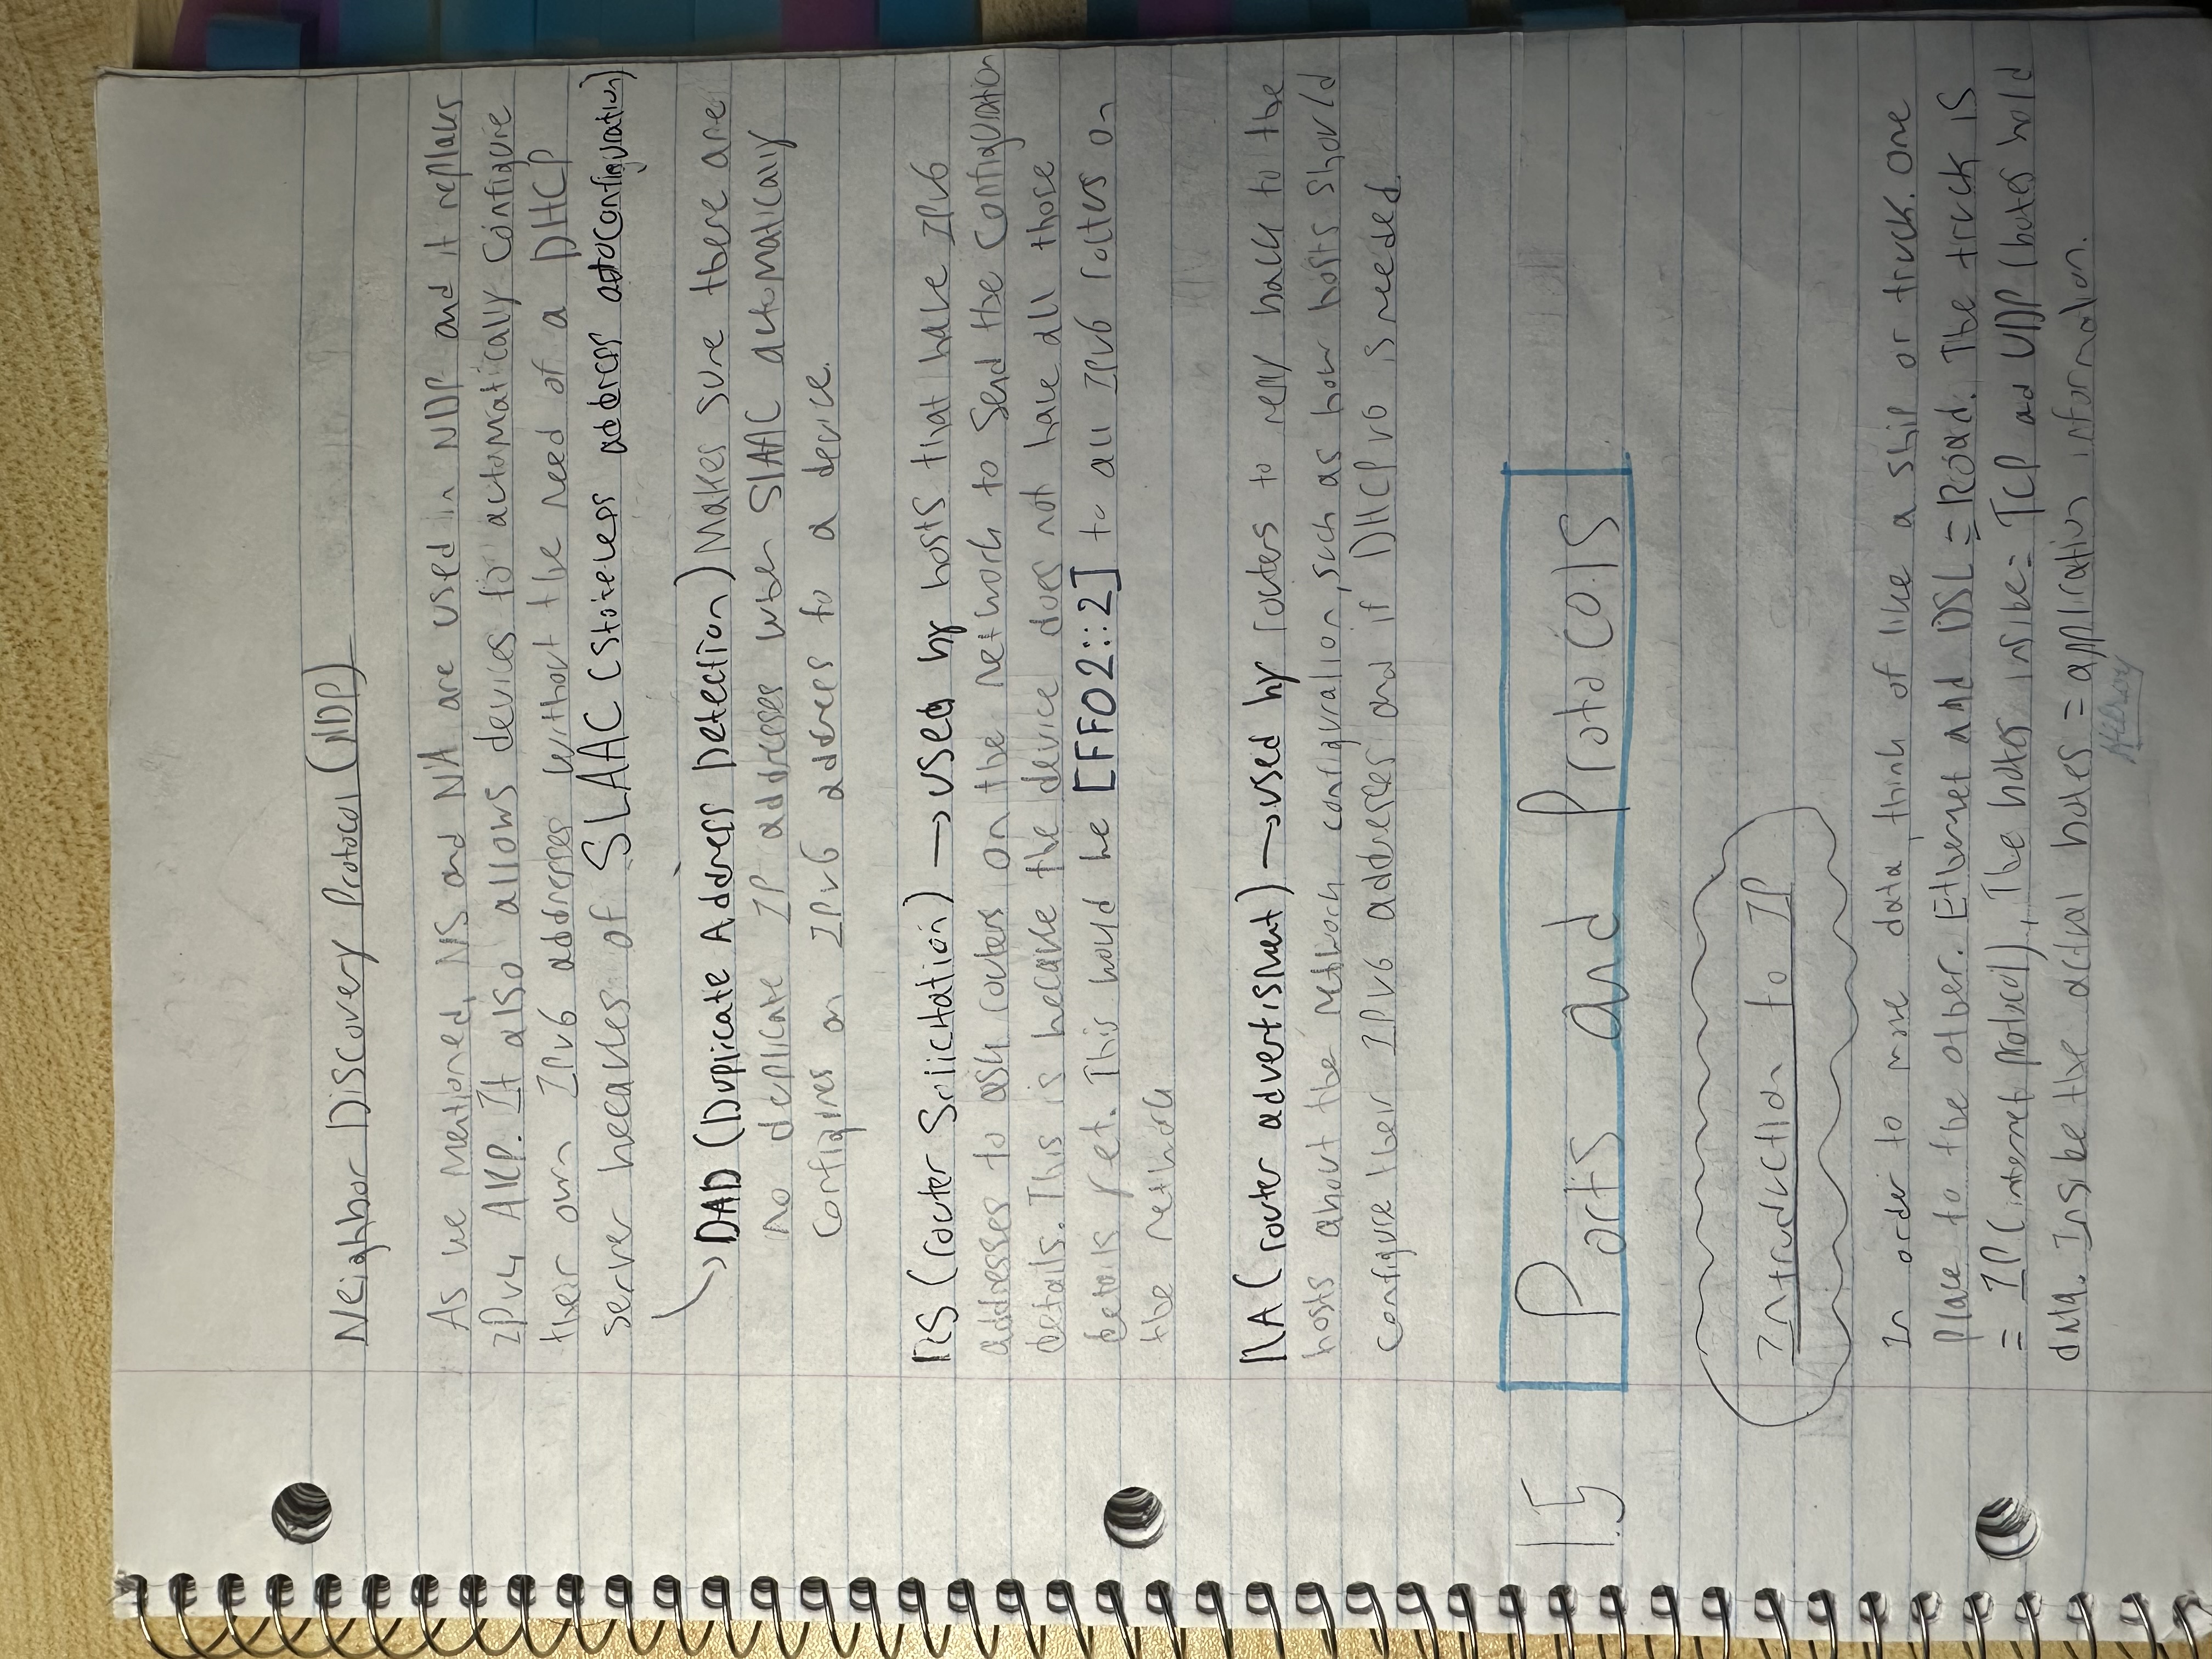 Neighbor Discovery Protocol (NDP)
As we mentioned, NS and NA are used in NDP and it replaces
IPv4 ARP. It also allows devices to automatically configure
their own IPv6 addresses without the need of a DHCP
server because of SLAAC (Stateless address autoconfiguration)
DAD (Duplicate Address Detection) Makes sure there are
no duplicate IP addresses when SLAAC automatically
configures an IPv6 address to a device.
RS (router Solicitation) → used by hosts that have IPv6
addresses to ask routers on the network to send the configuration
details. This is because the device does not have all those
details yet. This would be [FF02::2] to all IPv6 routers on
the network
RA (router advertisment) → used by routers to reply back to the
hosts about the network configuration, such as how hosts should
configure their IPv6 addresses and if DHCPv6 is needed.
1.5 Ports and Protocols
Introduction to IP
In order to move data, think of like a ship or truck. One
place to the other. Ethernet and DSL = Road. The truck is
= IP (internet protocol), The boxes inside = TCP and UDP (boxes hold
data. Inside the actual boxes = application information.
Hilroy